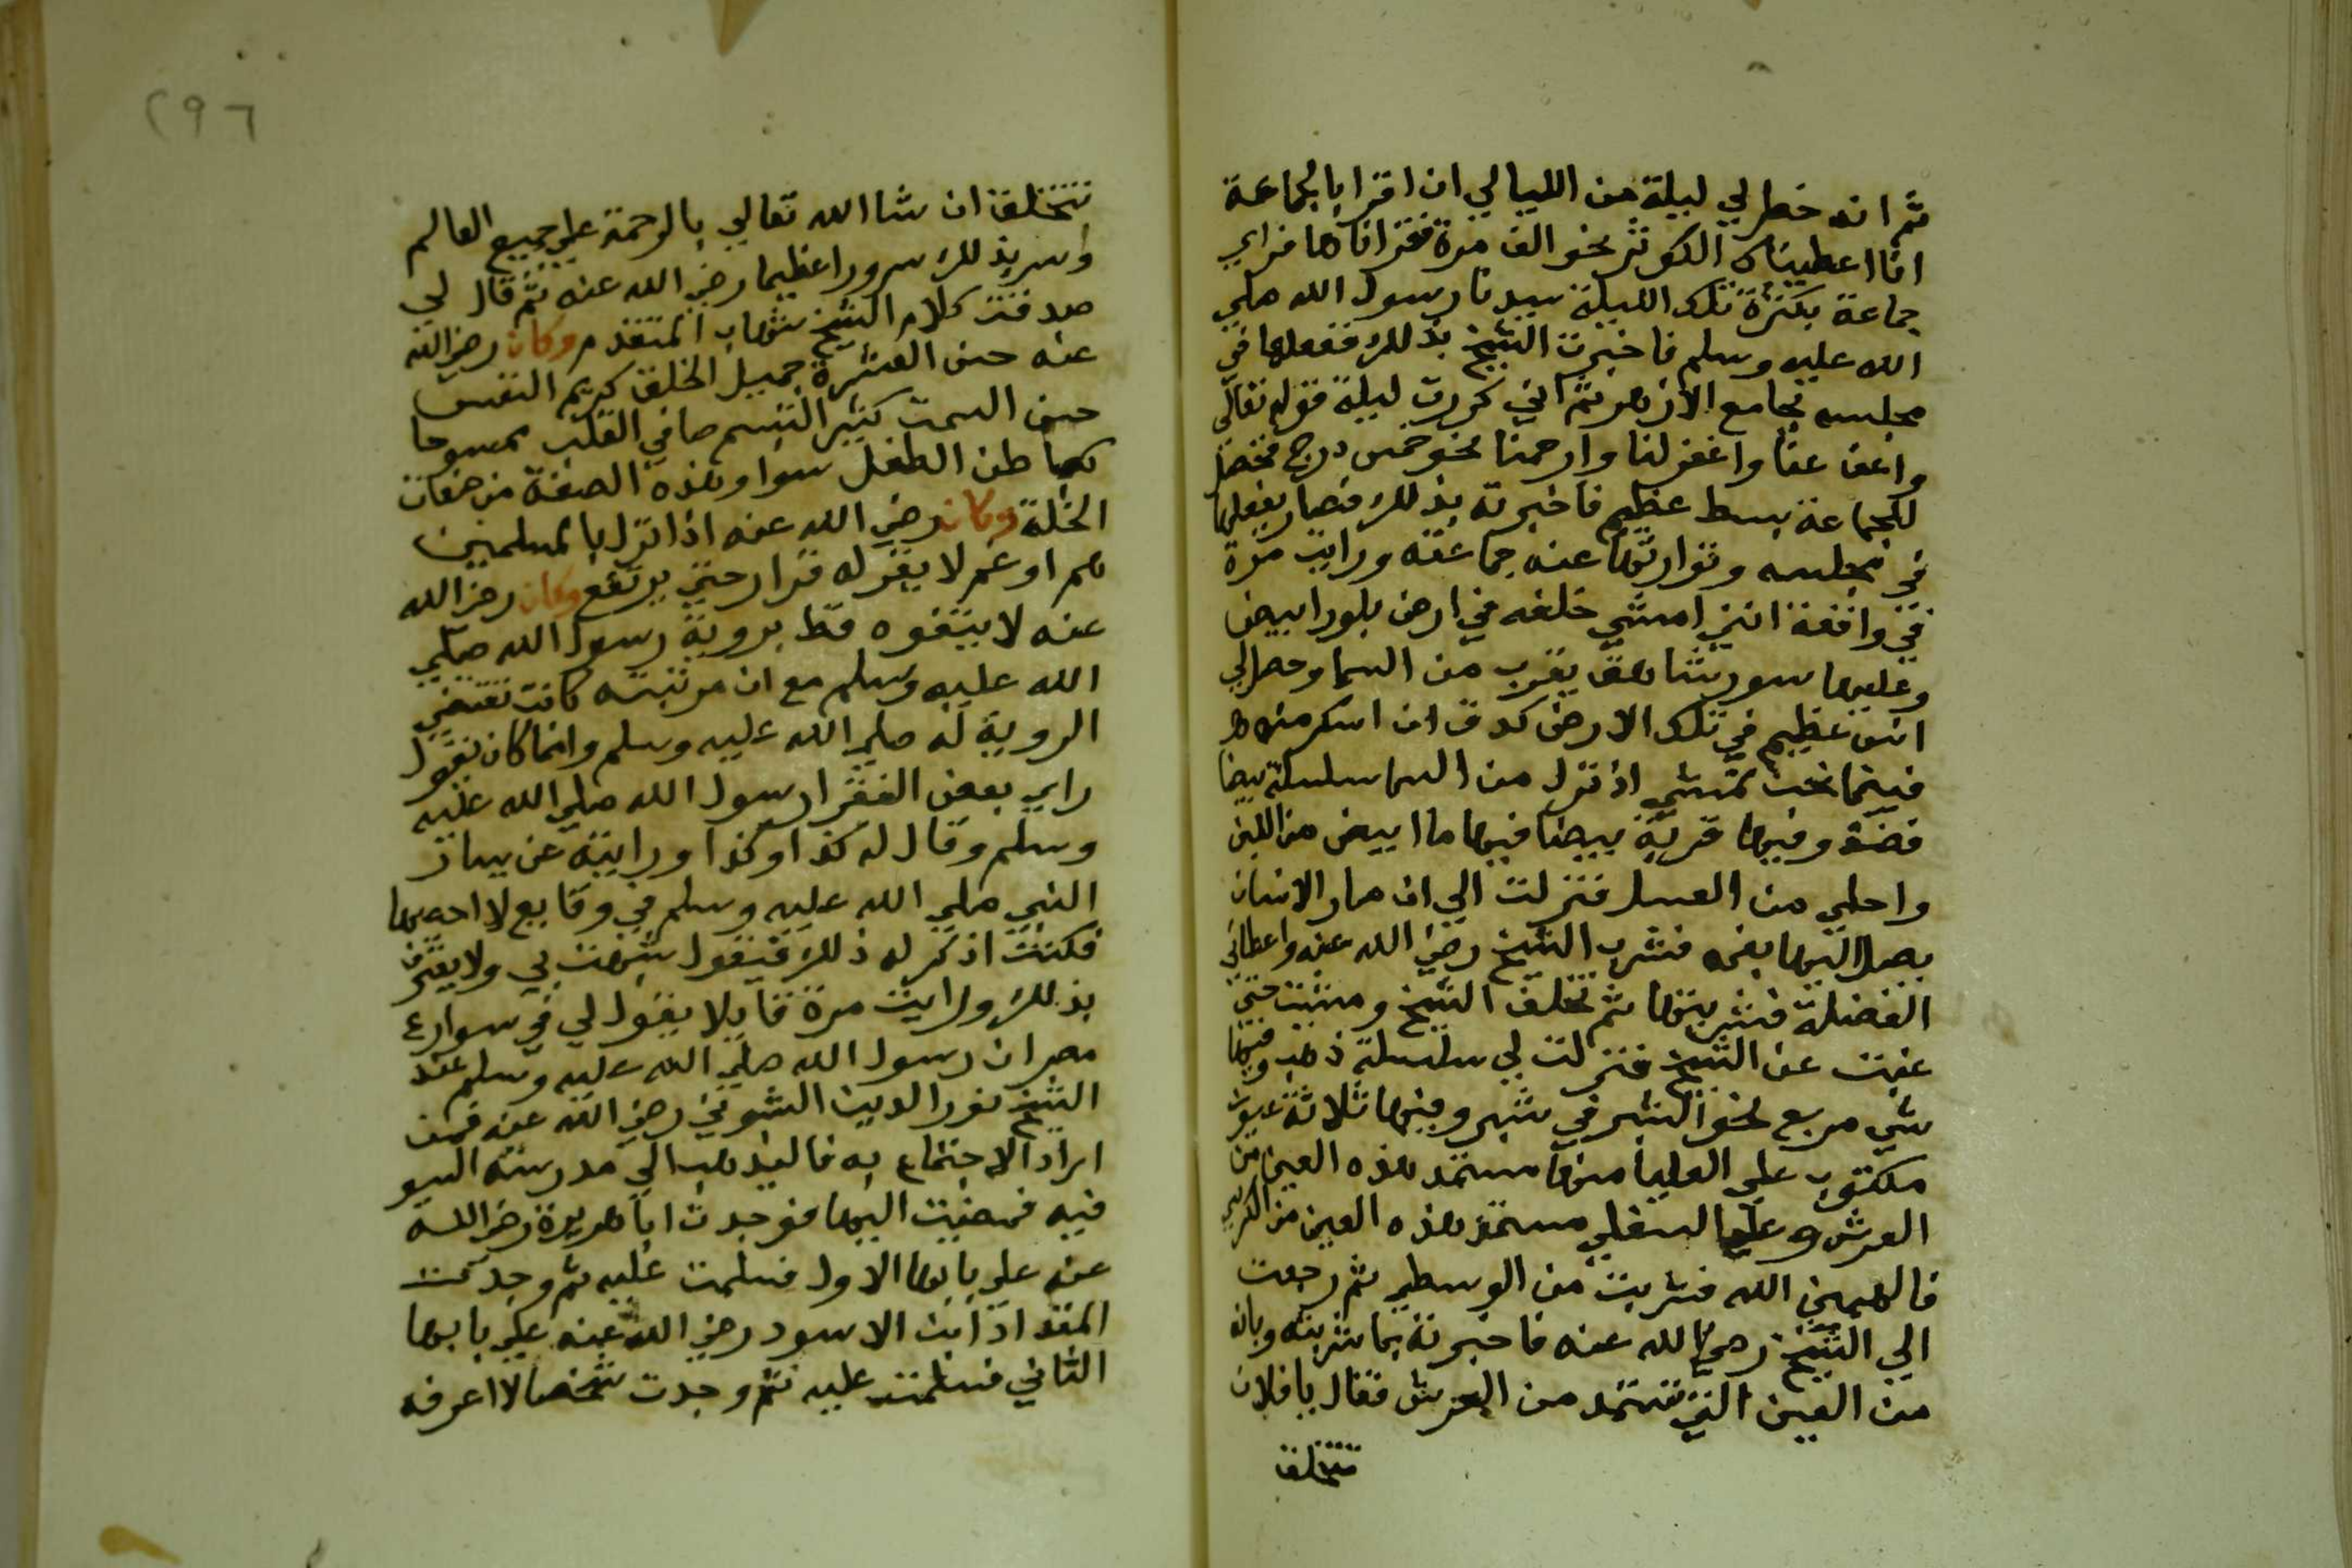 ثم انه خطر لي ليلة من الليالي ان اقرا بالجماعة
انا اعطيناك الكوثر نحو الف مرة فقراناها فراي
جماعة بكثرة تلك الليلة سيدنا رسول الله صلي
الله عليه وسلم فاخبرت الشيخ بذلك ففعلها في
مجلسه بجامع الازهر ثم اني كررت ليلة قوله تعالى
واعف عنا واغفر لنا وارحمنا نحو خمس درج فحصل
للجماعة بسط عظيم فاخبرته بذلك فصار يفعلها
في مجلسه وتوارثها عنه جماعته ورايت مرة
في واقعة انني امشي خلفه في ارض بلور ابيض
وعليها سور شاهق يقرب من السما وحصل لي
انس عظيم في تلك الارض كدت ان اسكر منه
فبينما نحن نمشي اذ نزل من السما سلسلة بيضا
فضة وفيها قربة بيضا فيها ما ابيض من اللبن
واحلي من العسل فنزلت الي ان صار الانسان
يصل اليها بفمه فشرب الشيخ رضي الله عنه واعطاني
الفضلة فشربتها ثم تخلف الشيخ ومشيت حتي
غبت عن الشيخ فنزلت لي سلسلة ذهب وفيها
شي مربع نحو الشبر في شبر وفيها ثلاثة عيون
مكتوب علي العليا منها مستمد هذه العين من
العرش وعلي السفلي مستمد هذه العين من الكرسي
فالهمني الله فشربت من الوسطي ثم رجعت
الي الشيخ رضي الله عنه فاخبرته بما شربته وبانه
من العين التي تستمد من العرش فقال يا فلان
تتخلق
٢٩٦
تتخلق ان شا الله تعالي بالرحمة علي جميع العالم
وسر بذلك سرورا عظيما رضي الله عنه ثم قال لي
صدقت كلام الشيخ شهاب المتقدم وكان رضي الله
عنه حسن العشرة جميل الخلق كريم النفس
حسن السمت كثير التبسم صافي القلب ممسوحا
كباطن الطفل سوا وهذه الصفة من صفات
الخلة وكان رضي الله عنه اذا نزل بالمسلمين
هم او غم لا يقر له قرار حتي يرتفع وكان رضي الله
عنه لا يتفوه قط بروية رسول الله صلي
الله عليه وسلم مع ان مرتبته كانت تقتضي
الروية له صلي الله عليه وسلم وانما كان يقول
راي بعض الفقرا رسول الله صلي الله عليه
وسلم وقال له كذا وكذا ورايته عن يسار
النبي صلي الله عليه وسلم في وقايع لا احصيها
فكنت اذكر له ذلك فيقول شبهت بي ولا يعترف
بذلك ورايت مرة قايلا يقول لي في شوارع
مصر ان رسول الله صلي الله عليه وسلم عند
الشيخ نور الدين الشوني رضي الله عنه فمن
اراد الاجتماع به فاليذهب الي مدرسته السيو
فيه فمضيت اليها فوجدت ابا هريرة رضي الله
عنه علي بابها الاول فسلمت عليه ثم وجدت
المقداد ابن الاسود رضي الله عنه علي بابها
الثاني فسلمت عليه ثم وجدت شخصا لا اعرفه